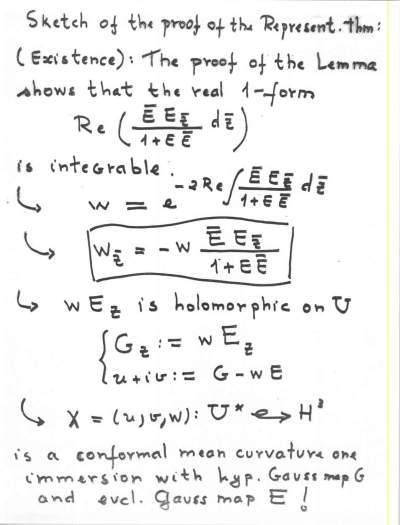 Sketch of the proof of the Represent. thm:
(Existence): The proof of the Lemma
shows that the real 1-form
Re ( Ē E_z̄ / 1+E Ē dz̄ )
is integrable.
↳ w = e^{-2Re ∫ Ē E_z̄ / 1+E Ē dz̄}
↳ w_z̄ = -w Ē E_z̄ / 1+E Ē
↳ w E_z is holomorphic on U
{ G_z := w E_z
u+iv := G-wE
↳ X = (u,v,w): U* ↪ H³
is a conformal mean curvature one
immersion with hyp. Gauss map G
and eucl. Gauss map E !